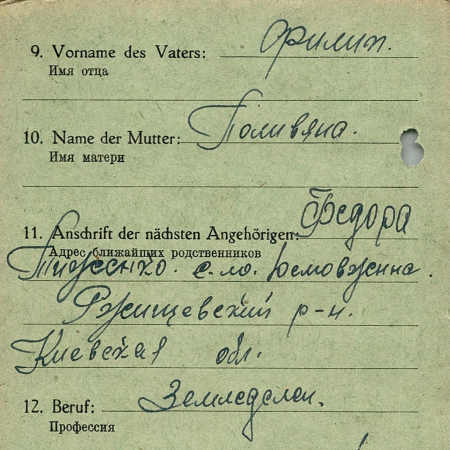 9. Vorname des Vaters: Филип.
Имя отца
10. Name der Mutter: Поливяна.
Имя матери
11. Anschrift der nächsten Angehörigen: Федора
Адрес ближайших родственников
с.
Ржищевский р-н.
Киевская обл.
12. Beruf: Земледелец.
Профессия